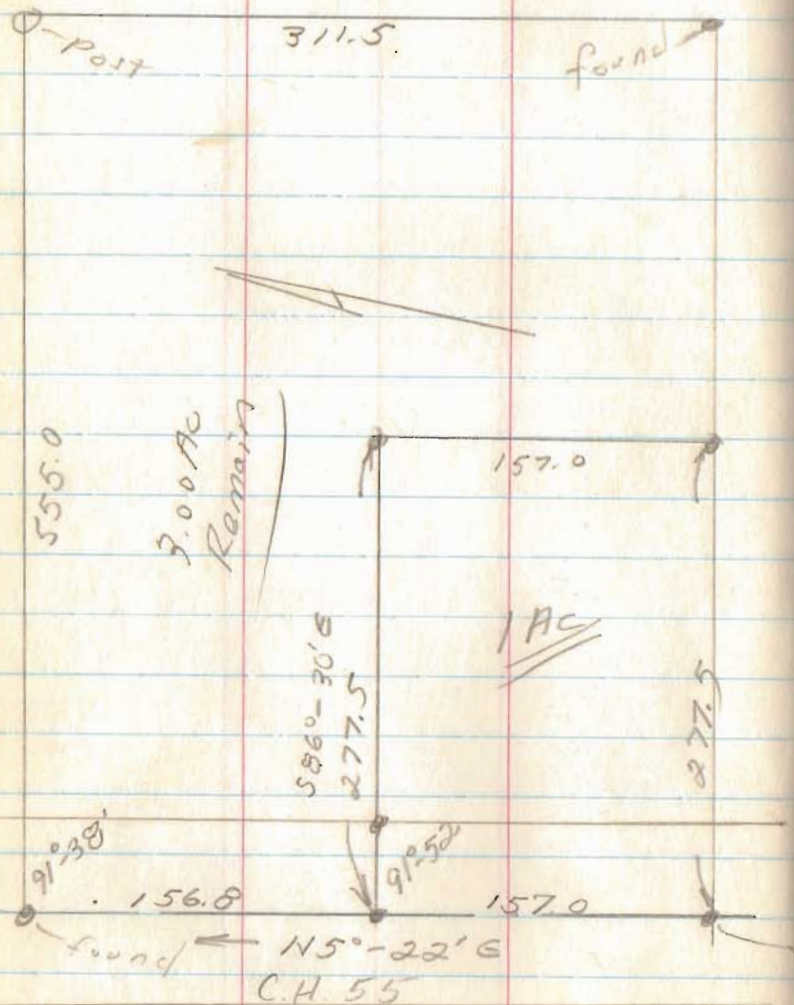 311.5
Post
found
555.0
3.00 Ac
Remain
157.0
1 Ac
S86°-30'E
277.5
277.5
91°-38'
91°-52
156.8
157.0
found ← N5°-22'E
C.H. 55